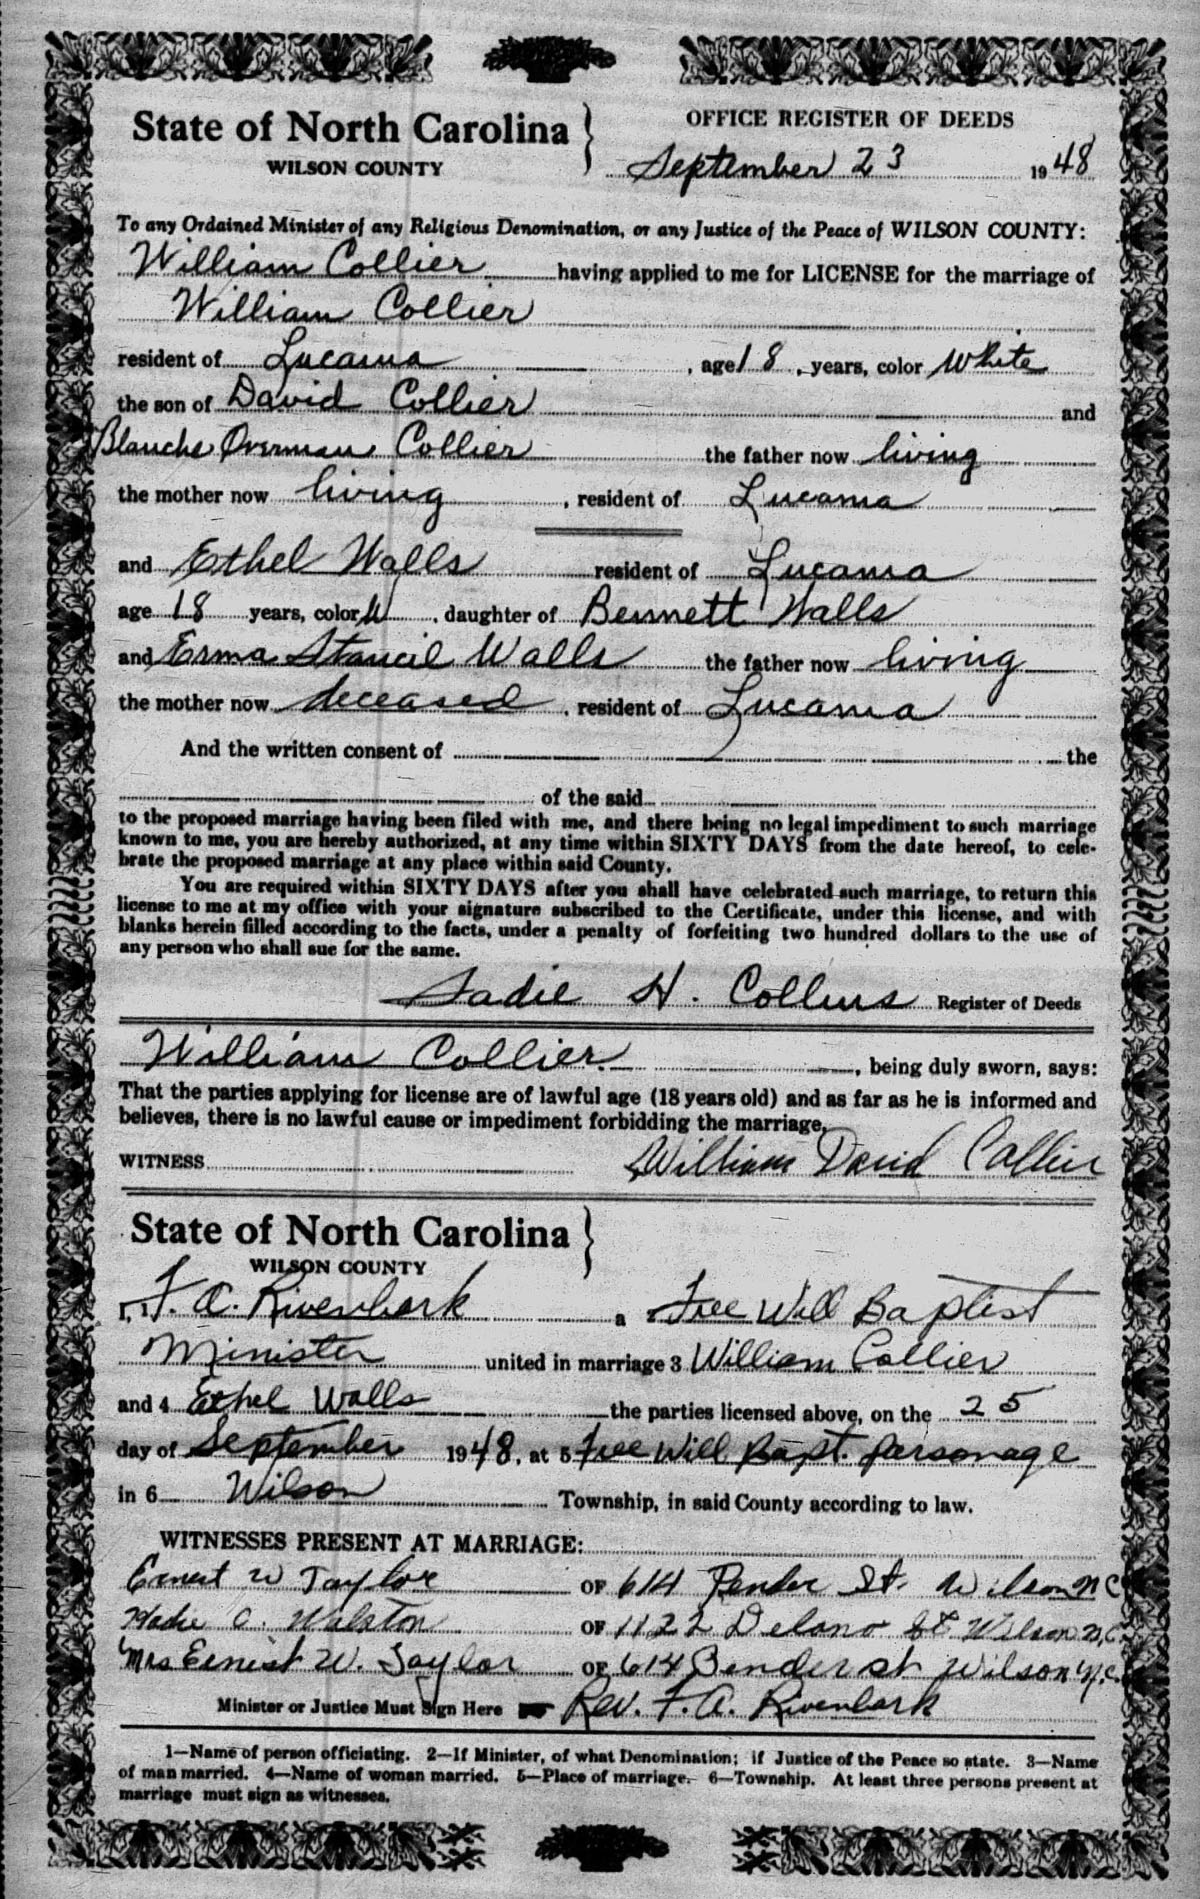 State of North Carolina
WILSON COUNTY
OFFICE REGISTER OF DEEDS
September 23 1948
To any Ordained Minister of any Religious Denomination, or any Justice of the Peace of WILSON COUNTY:
William Collier having applied to me for LICENSE for the marriage of
William Collier
resident of Lucama, age 18, years, color White
the son of David Collier and
Blanche Overman Collier the father now living
the mother now living, resident of Lucama
and Ethel Walls resident of Lucama
age 18 years, color W, daughter of Bennett Walls
and Erma Stancil Walls the father now living
the mother now deceased, resident of Lucama
And the written consent of the
of the said
to the proposed marriage having been filed with me, and there being no legal impediment to such marriage
known to me, you are hereby authorized, at any time within SIXTY DAYS from the date hereof, to cele-
brate the proposed marriage at any place within said County.
You are required within SIXTY DAYS after you shall have celebrated such marriage, to return this
license to me at my office with your signature subscribed to the Certificate, under this license, and with
blanks herein filled according to the facts, under a penalty of forfeiting two hundred dollars to the use of
any person who shall sue for the same.
Sadie H. Collins Register of Deeds
William Collier, being duly sworn, says:
That the parties applying for license are of lawful age (18 years old) and as far as he is informed and
believes, there is no lawful cause or impediment forbidding the marriage.
WITNESS William David Collier
State of North Carolina
WILSON COUNTY
I, 1 F. A. Rivenbark a Free Will Baptist
Minister united in marriage 3 William Collier
and 4 Ethel Walls the parties licensed above, on the 25
day of September 1948, at 5 Free Will Bapt. parsonage
in 6 Wilson Township, in said County according to law.
WITNESSES PRESENT AT MARRIAGE:
Ernest W Taylor OF 614 Pender St. Wilson N C
C. Walston OF 1122 Delano St. Wilson N.C.
Mrs Ernest W. Taylor OF 614 Pender St Wilson N.C.
Minister or Justice Must Sign Here Rev. F. A. Rivenbark
1—Name of person officiating. 2—If Minister, of what Denomination; if Justice of the Peace so state. 3—Name
of man married. 4—Name of woman married. 5—Place of marriage. 6—Township. At least three persons present at
marriage must sign as witnesses.